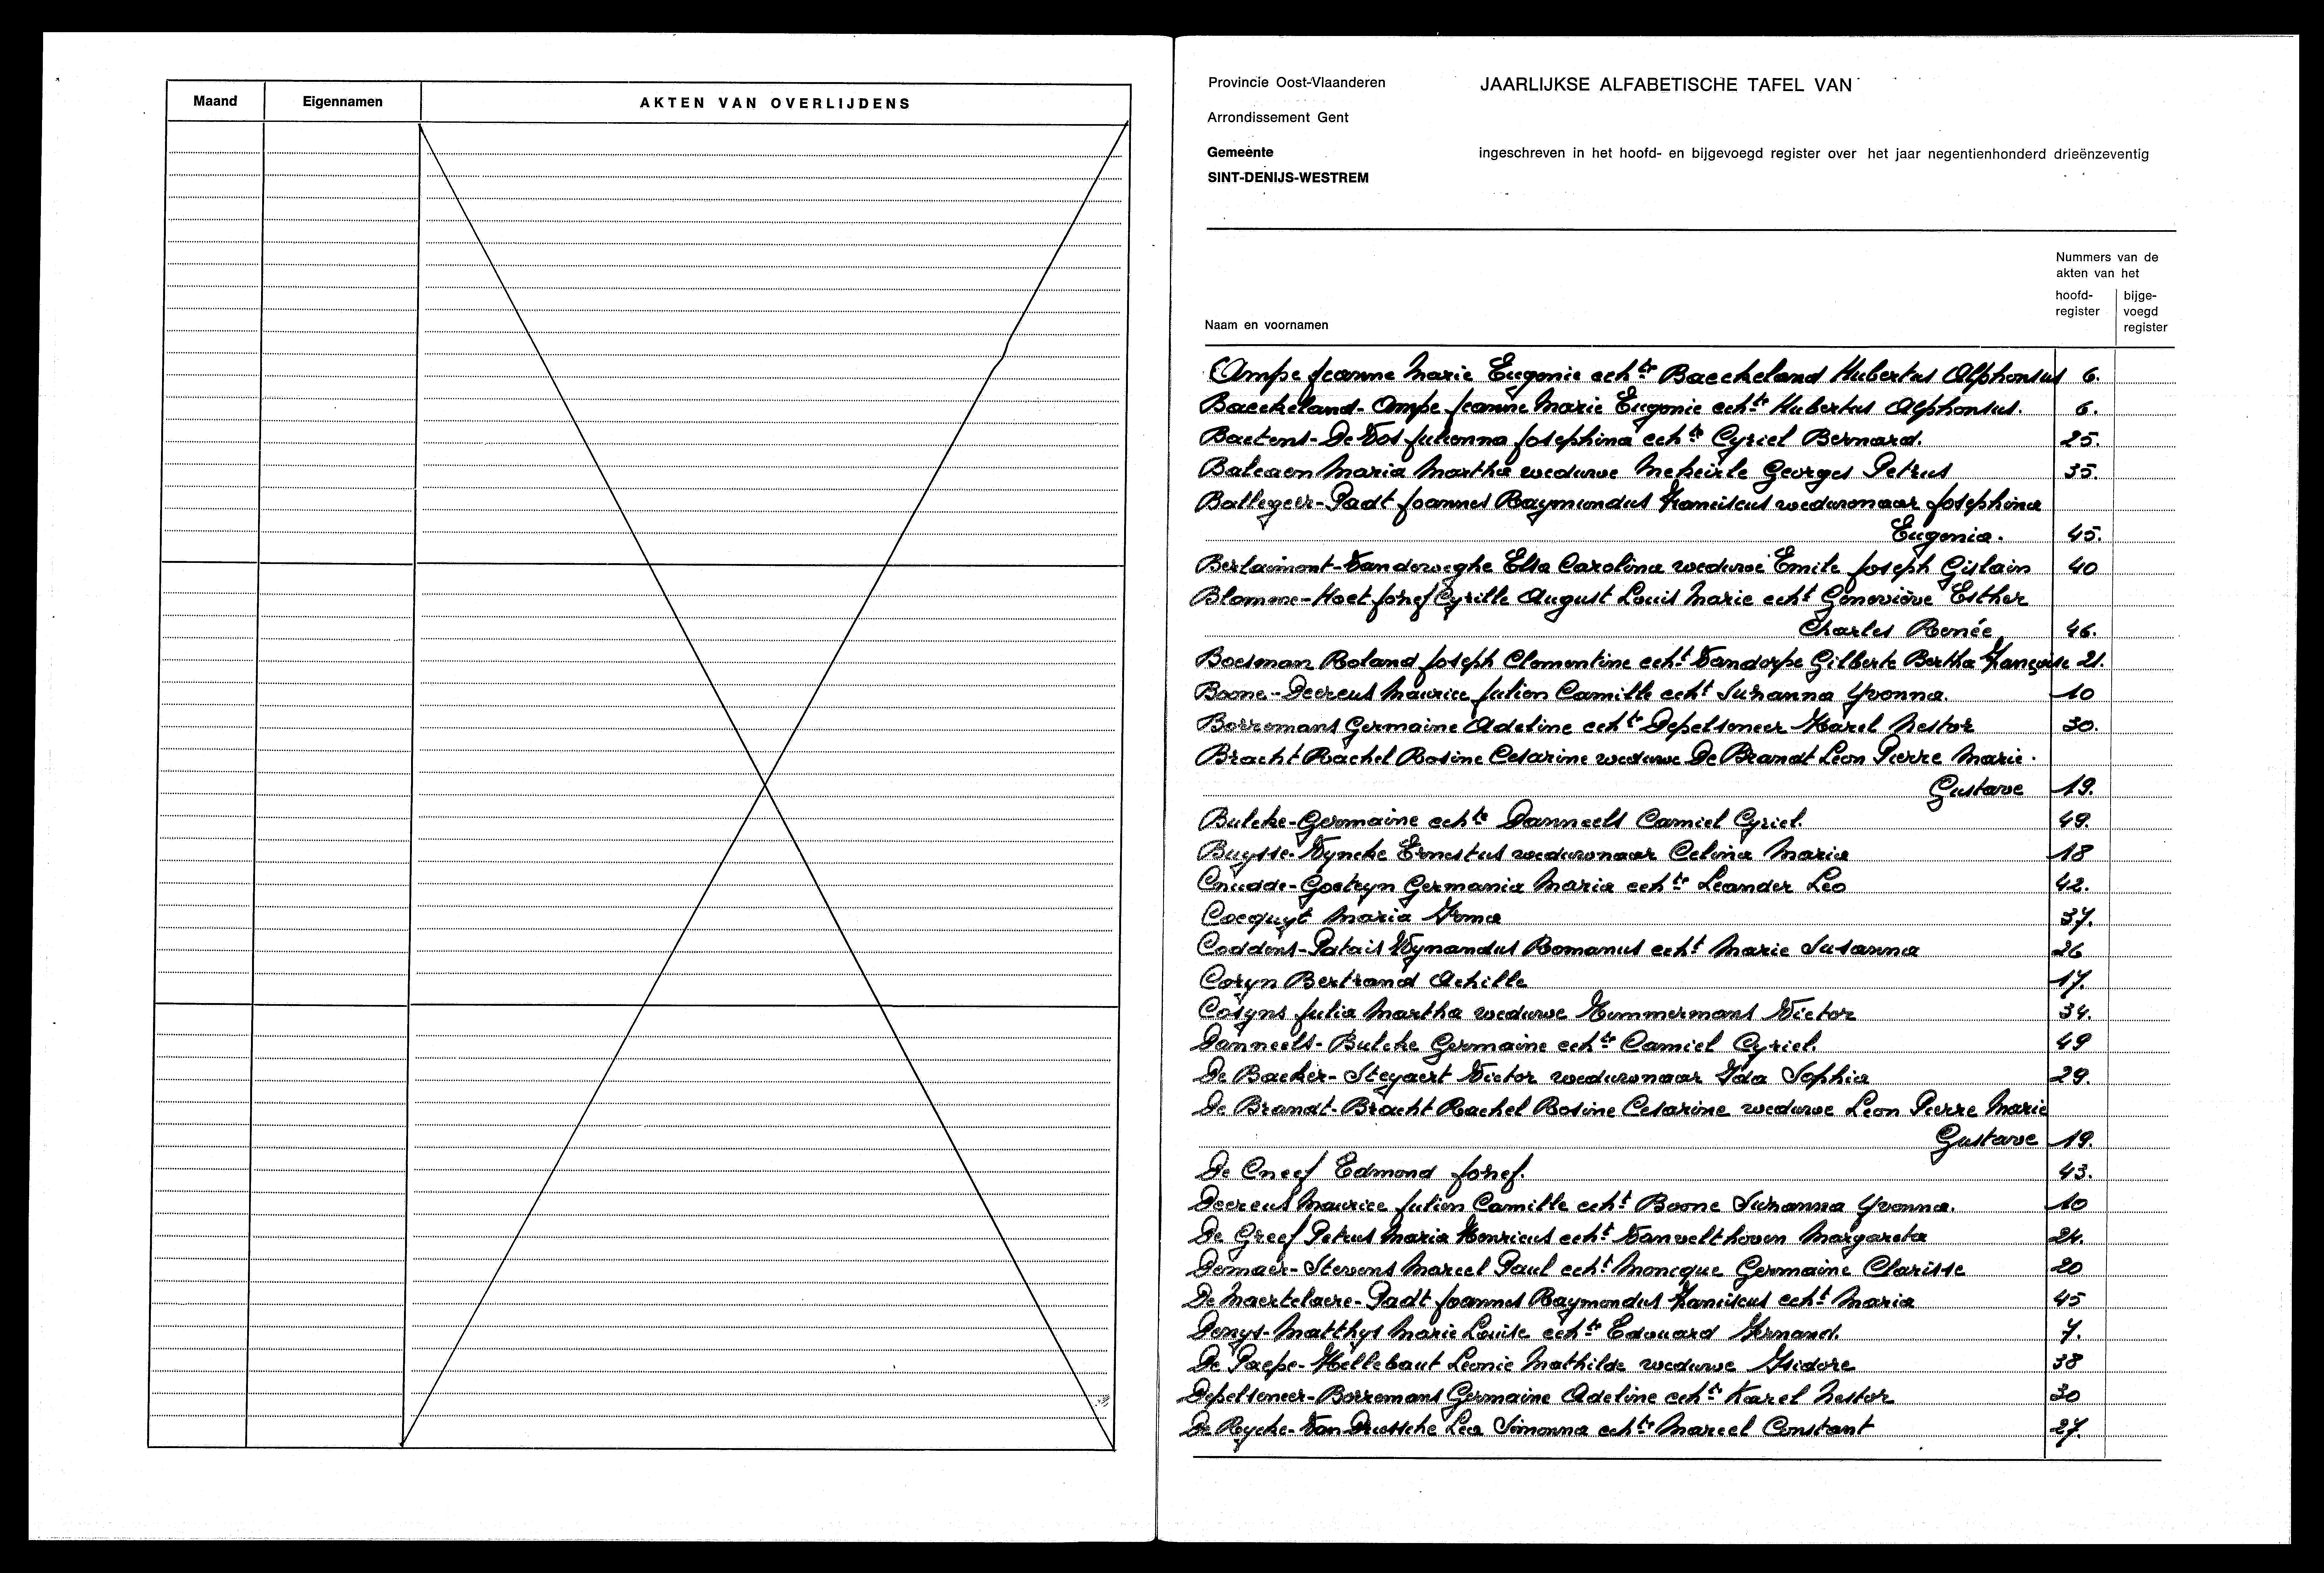 Maand Eigennamen AKTEN VAN OVERLIJDENS
Provincie Oost-Vlaanderen
JAARLIJKSE ALFABETISCHE TAFEL VAN
Arrondissement Gent
Gemeente
ingeschreven in het hoofd- en bijgevoegd register over het jaar negentienhonderd drieënzeventig
SINT-DENIJS-WESTREM
Nummers van de
akten van het
hoofd- bijge-
register voegd
Naam en voornamen register
Ampe Jeanne Marie Eugenie echte Baeckeland Hubertus Alphonsus 6.
Baeckeland-Ampe Jeanne Marie Eugenie echte Hubertus Alphonsus. 6.
Baetens-De Vos Julienna Josephina echte Cyriel Bernard. 25.
Balcaen Maria Martha weduwe Meheirle Georges Petrus 35.
Ballegeer-Padt Joannes Raymundus Franciscus weduwnaar Josephina
Eugenia. 45.
Berlaimont-Vandeweghe Elsa Carolina weduwe Emile Joseph Gislain 40
Blomme-Hoet Jozef Cyrille August Louis Marie echt Geneviève Esther
Charles Renée 46.
Boesman Roland Joseph Clementine echt Vandorpe Gilberte Bertha Françoise 21.
Boone-Decreus Maurice Julien Camille echt Suzanna Yvonna. 10
Borremans Germaine Adeline echte Depelseneer Karel Nestor 30.
Bracht Rachel Rosine Cesarine weduwe De Brandt Leon Pierre Marie.
Gustave 19.
Bulcke-Germaine echte Danneels Camiel Cyriel. 49.
Buysse-Vyncke Ernestus weduwnaar Celina Maria 18
Cnudde-Goetryn Germania Maria echte Leander Leo 42.
Cocquyt Maria Irma 37.
Coddens-Patais Wynandus Romanus echt Marie Susanna 26
Coryn Bertrand Achille 17.
Cosyns Julia Martha weduwe Temmermans Victor 34.
Danneels-Bulcke Germaine echte Camiel Cyriel. 49
De Backer-Steyaert Victor weduwnaar Ida Sophia 29.
De Brandt-Bracht Rachel Rosine Cesarine weduwe Leon Pierre Marie
Gustave 19.
De Cneef Edmond Jozef. 43.
Decreus Maurice Julien Camille echt Boone Suzanna Yvonna. 10
De Greef Petrus Maria Henricus echt Vanvelthoven Margareta 24.
Demaer-Stevens Marcel Paul echt Moncque Germaine Clarisse 20
De Maertelaere-Padt Joannes Raymondus Franciscus echt Maria 45
Denys-Matthys Marie Louise echte Edouard Fernand. 7.
De Paepe-Hellebaut Leonie Mathilde weduwe Isidore 38
Depelseneer-Borremans Germaine Adeline echte Karel Nestor 30
De Rycke-Van Driessche Lea Simonna echte Marcel Constant 27.